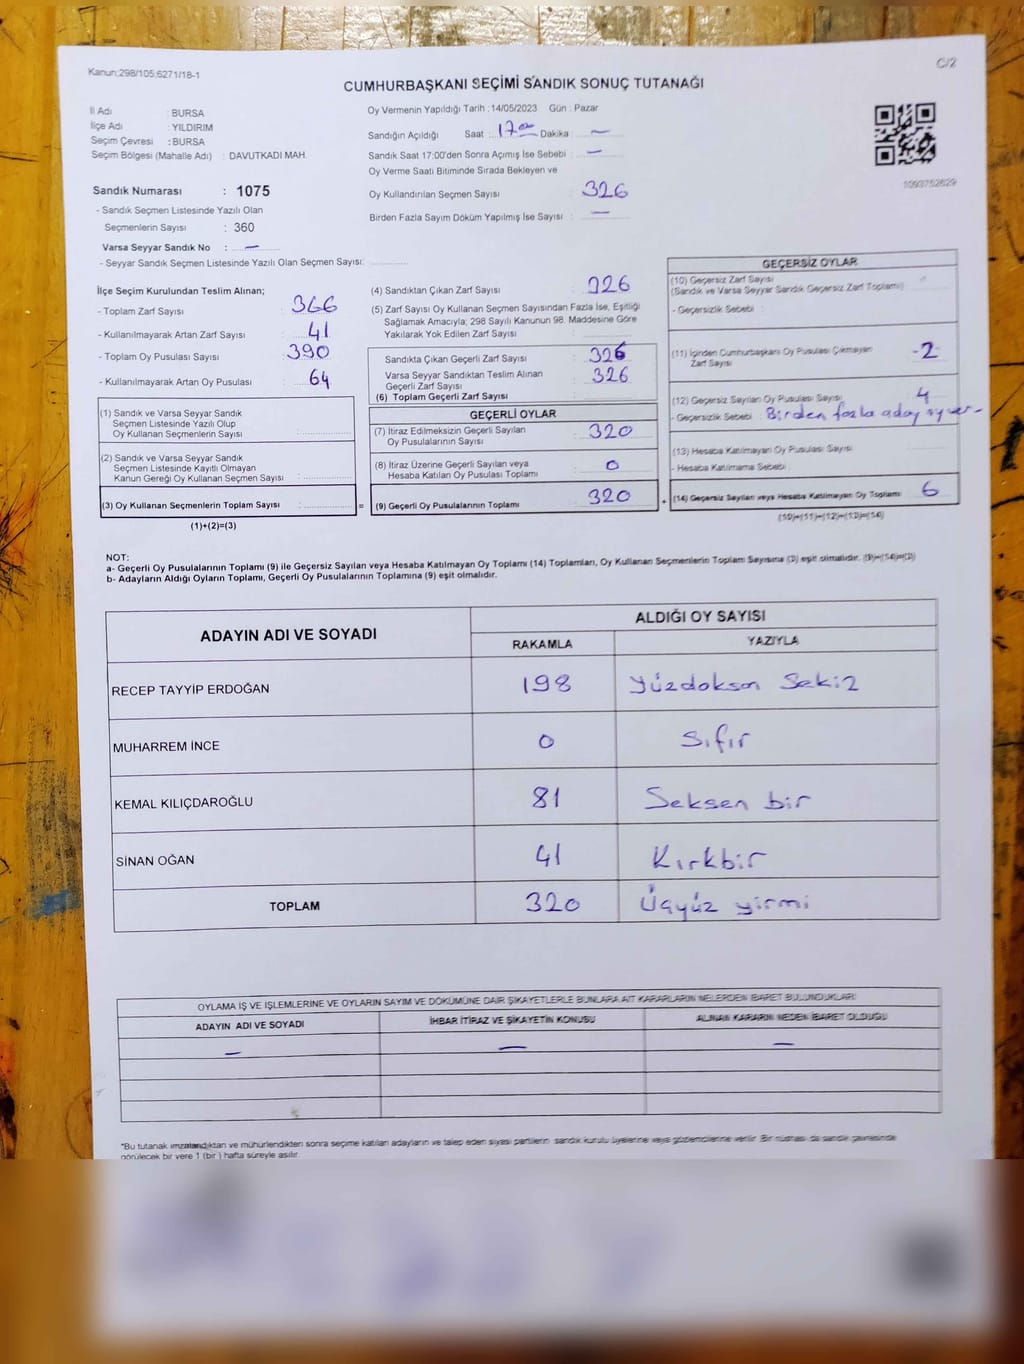 Kanun;298/105;6271/18-1
C/2
CUMHURBAŞKANI SEÇİMİ SANDIK SONUÇ TUTANAĞI
İl Adı : BURSA
İlçe Adı : YILDIRIM
Seçim Çevresi : BURSA
Seçim Bölgesi (Mahalle Adı) : DAVUTKADI MAH.
Oy Vermenin Yapıldığı Tarih : 14/05/2023 Gün : Pazar
Sandığın Açıldığı Saat : 17:00 Dakika : —
Sandık Saat 17:00'den Sonra Açımış İse Sebebi : —
Oy Verme Saati Bitiminde Sırada Bekleyen ve
Oy Kullandırılan Seçmen Sayısı : 326
Birden Fazla Sayım Döküm Yapılmış İse Sayısı : —
1093752629
Sandık Numarası : 1075
- Sandık Seçmen Listesinde Yazılı Olan
Seçmenlerin Sayısı : 360
Varsa Seyyar Sandık No : —
- Seyyar Sandık Seçmen Listesinde Yazılı Olan Seçmen Sayısı:
İlçe Seçim Kurulundan Teslim Alınan;
- Toplam Zarf Sayısı : 366
- Kullanılmayarak Artan Zarf Sayısı : 41
- Toplam Oy Pusulası Sayısı : 390
- Kullanılmayarak Artan Oy Pusulası : 64
(1) Sandık ve Varsa Seyyar Sandık
Seçmen Listesinde Yazılı Olup
Oy Kullanan Seçmenlerin Sayısı :
(2) Sandık ve Varsa Seyyar Sandık
Seçmen Listesinde Kayıtlı Olmayan
Kanun Gereği Oy Kullanan Seçmen Sayısı :
(3) Oy Kullanan Seçmenlerin Toplam Sayısı : =
(1)+(2)=(3)
(4) Sandıktan Çıkan Zarf Sayısı : 326
(5) Zarf Sayısı Oy Kullanan Seçmen Sayısından Fazla İse, Eşitliği
Sağlamak Amacıyla; 298 Sayılı Kanunun 98. Maddesine Göre
Yakılarak Yok Edilen Zarf Sayısı :
Sandıkta Çıkan Geçerli Zarf Sayısı : 326
Varsa Seyyar Sandıktan Teslim Alınan
Geçerli Zarf Sayısı : 326
(6) Toplam Geçerli Zarf Sayısı :
GEÇERLİ OYLAR
(7) İtiraz Edilmeksizin Geçerli Sayılan
Oy Pusulalarının Sayısı : 320
(8) İtiraz Üzerine Geçerli Sayılan veya
Hesaba Katılan Oy Pusulası Toplamı : 0
(9) Geçerli Oy Pusulalarının Toplamı : 320 +
GEÇERSİZ OYLAR
(10) Geçersiz Zarf Sayısı
(Sandık ve Varsa Seyyar Sandık Geçersiz Zarf Toplamı) :
- Geçersizlik Sebebi :
(11) İçinden Cumhurbaşkanı Oy Pusulası Çıkmayan
Zarf Sayısı : 2
(12) Geçersiz Sayılan Oy Pusulası Sayısı : 4
- Geçersizlik Sebebi : Birden fazla aday oy ver-
(13) Hesaba Katılmayan Oy Pusulası Sayısı :
- Hesaba Katılmama Sebebi :
(14) Geçersiz Sayılan veya Hesaba Katılmayan Oy Toplamı : 6
(10)+(11)+(12)+(13)=(14)
NOT:
a- Geçerli Oy Pusulalarının Toplamı (9) ile Geçersiz Sayılan veya Hesaba Katılmayan Oy Toplamı (14) Toplamları, Oy Kullanan Seçmenlerin Toplam Sayısına (3) eşit olmalıdır. (9)+(14)=(3)
b- Adayların Aldığı Oyların Toplamı, Geçerli Oy Pusulalarının Toplamına (9) eşit olmalıdır.
ADAYIN ADI VE SOYADI
ALDIĞI OY SAYISI
RAKAMLA YAZIYLA
RECEP TAYYİP ERDOĞAN 198 Yüzdoksan Sekiz
MUHARREM İNCE 0 Sıfır
KEMAL KILIÇDAROĞLU 81 Seksen bir
SİNAN OĞAN 41 Kırkbir
TOPLAM 320 Üçyüz yirmi
OYLAMA İŞ VE İŞLEMLERİNE VE OYLARIN SAYIM VE DÖKÜMÜNE DAİR ŞİKAYETLERLE BUNLARA AİT KARARLARIN NELERDEN İBARET BULUNDUKLARI
ADAYIN ADI VE SOYADI İHBAR İTİRAZ VE ŞİKAYETİN KONUSU ALINAN KARARIN NEDEN İBARET OLDUĞU
— — —
*Bu tutanak imzalandıktan ve mühürlendikten sonra seçime katılan adayların ve talep eden siyasi partilerin sandık kurulu üyelerine veya gözlemcilerine verilir. Bir nüshası da sandık çevresinde
görülecek bir yere 1 (bir ) hafta süreyle asılır.